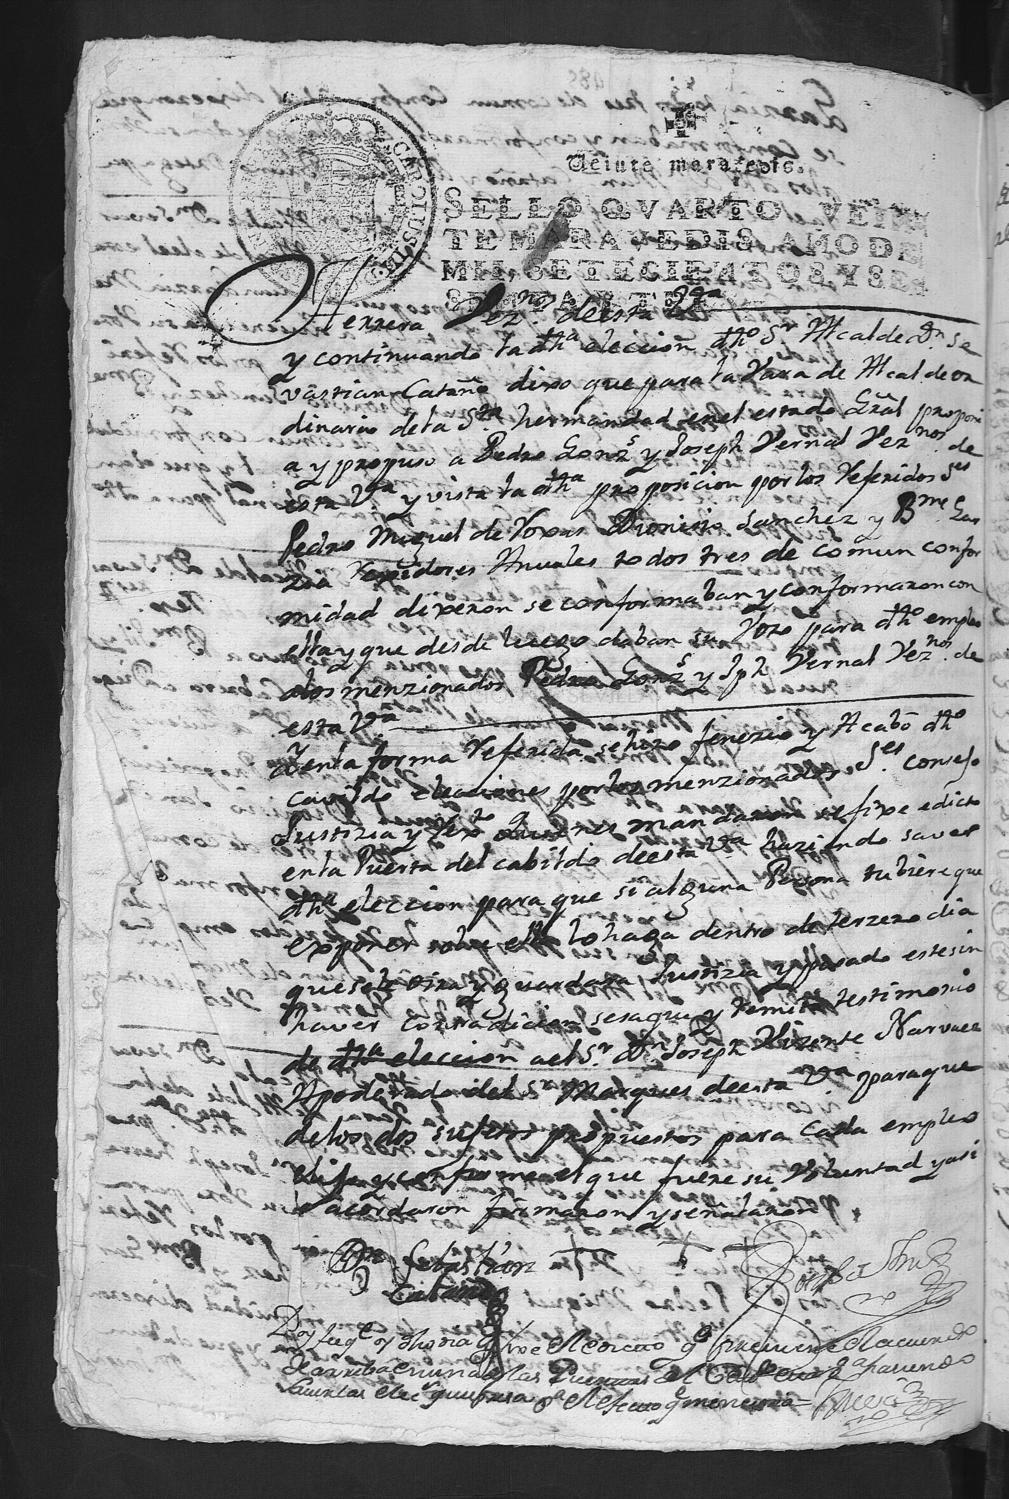 Veinte maravedis.
SELLO QVARTO, VEIN
TE MARAVEDIS, AÑO DE
MIL SETECIENTOS Y SE
CAROLUS III
Herrera Vez.nos de esta V.a
y continuando la dha eleccion dho S.r Alcalde D.n Se
vastian Cataño dixo que para la Vara de Alcalde or
dinario de la S.ta hermandad en el estado Gral proponi
a y propuso a Pedro Gonz.s y Joseph Vernal Vez.nos de
esta V.a y vista la dha proposicion por los Referidos S.es
Pedro Miguel de Dionisio Sanchez y B.me Gar
zia Rexidores Anuales todos tres de comun confor
midad dixeron se conformaban y conformaron con
ella y que desde luego daban su Voto para dho empleo
a los menzionados Pedro Gonz.s y Jph Vernal Vez.nos de
esta V.a
Y en la forma Referida se hizo fenezio y Acabó dho
Cavildo elecciones por los menzionados S.es Consejo
Justizia y Rex.to quienes mandaron se fixe edicto
en la Puerta del cabildo de esta V.a haziendo saver
dha eleccion para que si alguna Persona tubiere que
exponer sobre ello lo haga dentro de terzero dia
que se le oira y guardara Justizia y pasado este sin
haver contradicion se saque y remita testimonio
de dha eleccion a el S.r D.n Joseph Vizente Narvaez
Apoderado del S. Marques de esta V.a para que
de los dos sujetos propuestos para cada empleo
elija y confirme el que fuere su Voluntad y asi
lo acordaron firmaron y señalaron
D.n Sebastian
Cataño
Doy fee q.e oy dia fixe el edicto q.e previene el acuerdo
de arriba en una de las Puertas del Cav.do de esta V.a
el efecto q.e menciona =